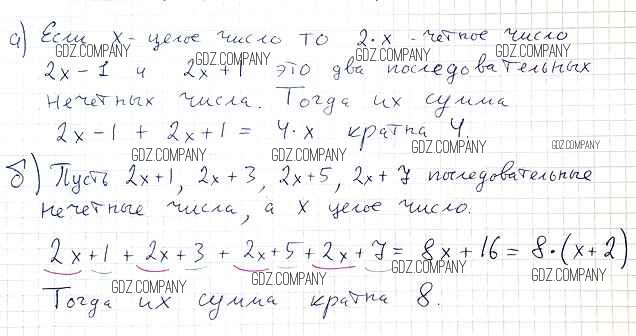 а) Если x - целое число то 2·x - четное число
GDZ.COMPANY GDZ.COMPANY GDZ.COMPANY
2x - 1 и 2x + 1 это два последовательных
GDZ.COMPANY
нечетных числа. Тогда их сумма
2x - 1 + 2x + 1 = 4·x кратна 4.
GDZ.COMPANY GDZ.COMPANY GDZ.COMPANY
б) Пусть 2x+1, 2x+3, 2x+5, 2x+7 последовательные
GDZ.COMPANY GDZ.COMPANY
нечетные числа, а x целое число.
2x+1 + 2x+3 + 2x+5 + 2x+7 = 8x+16 = 8·(x+2)
GDZ.COMPANY GDZ.COMPANY GDZ.COMPANY GDZ.COMPANY
Тогда их сумма кратна 8.